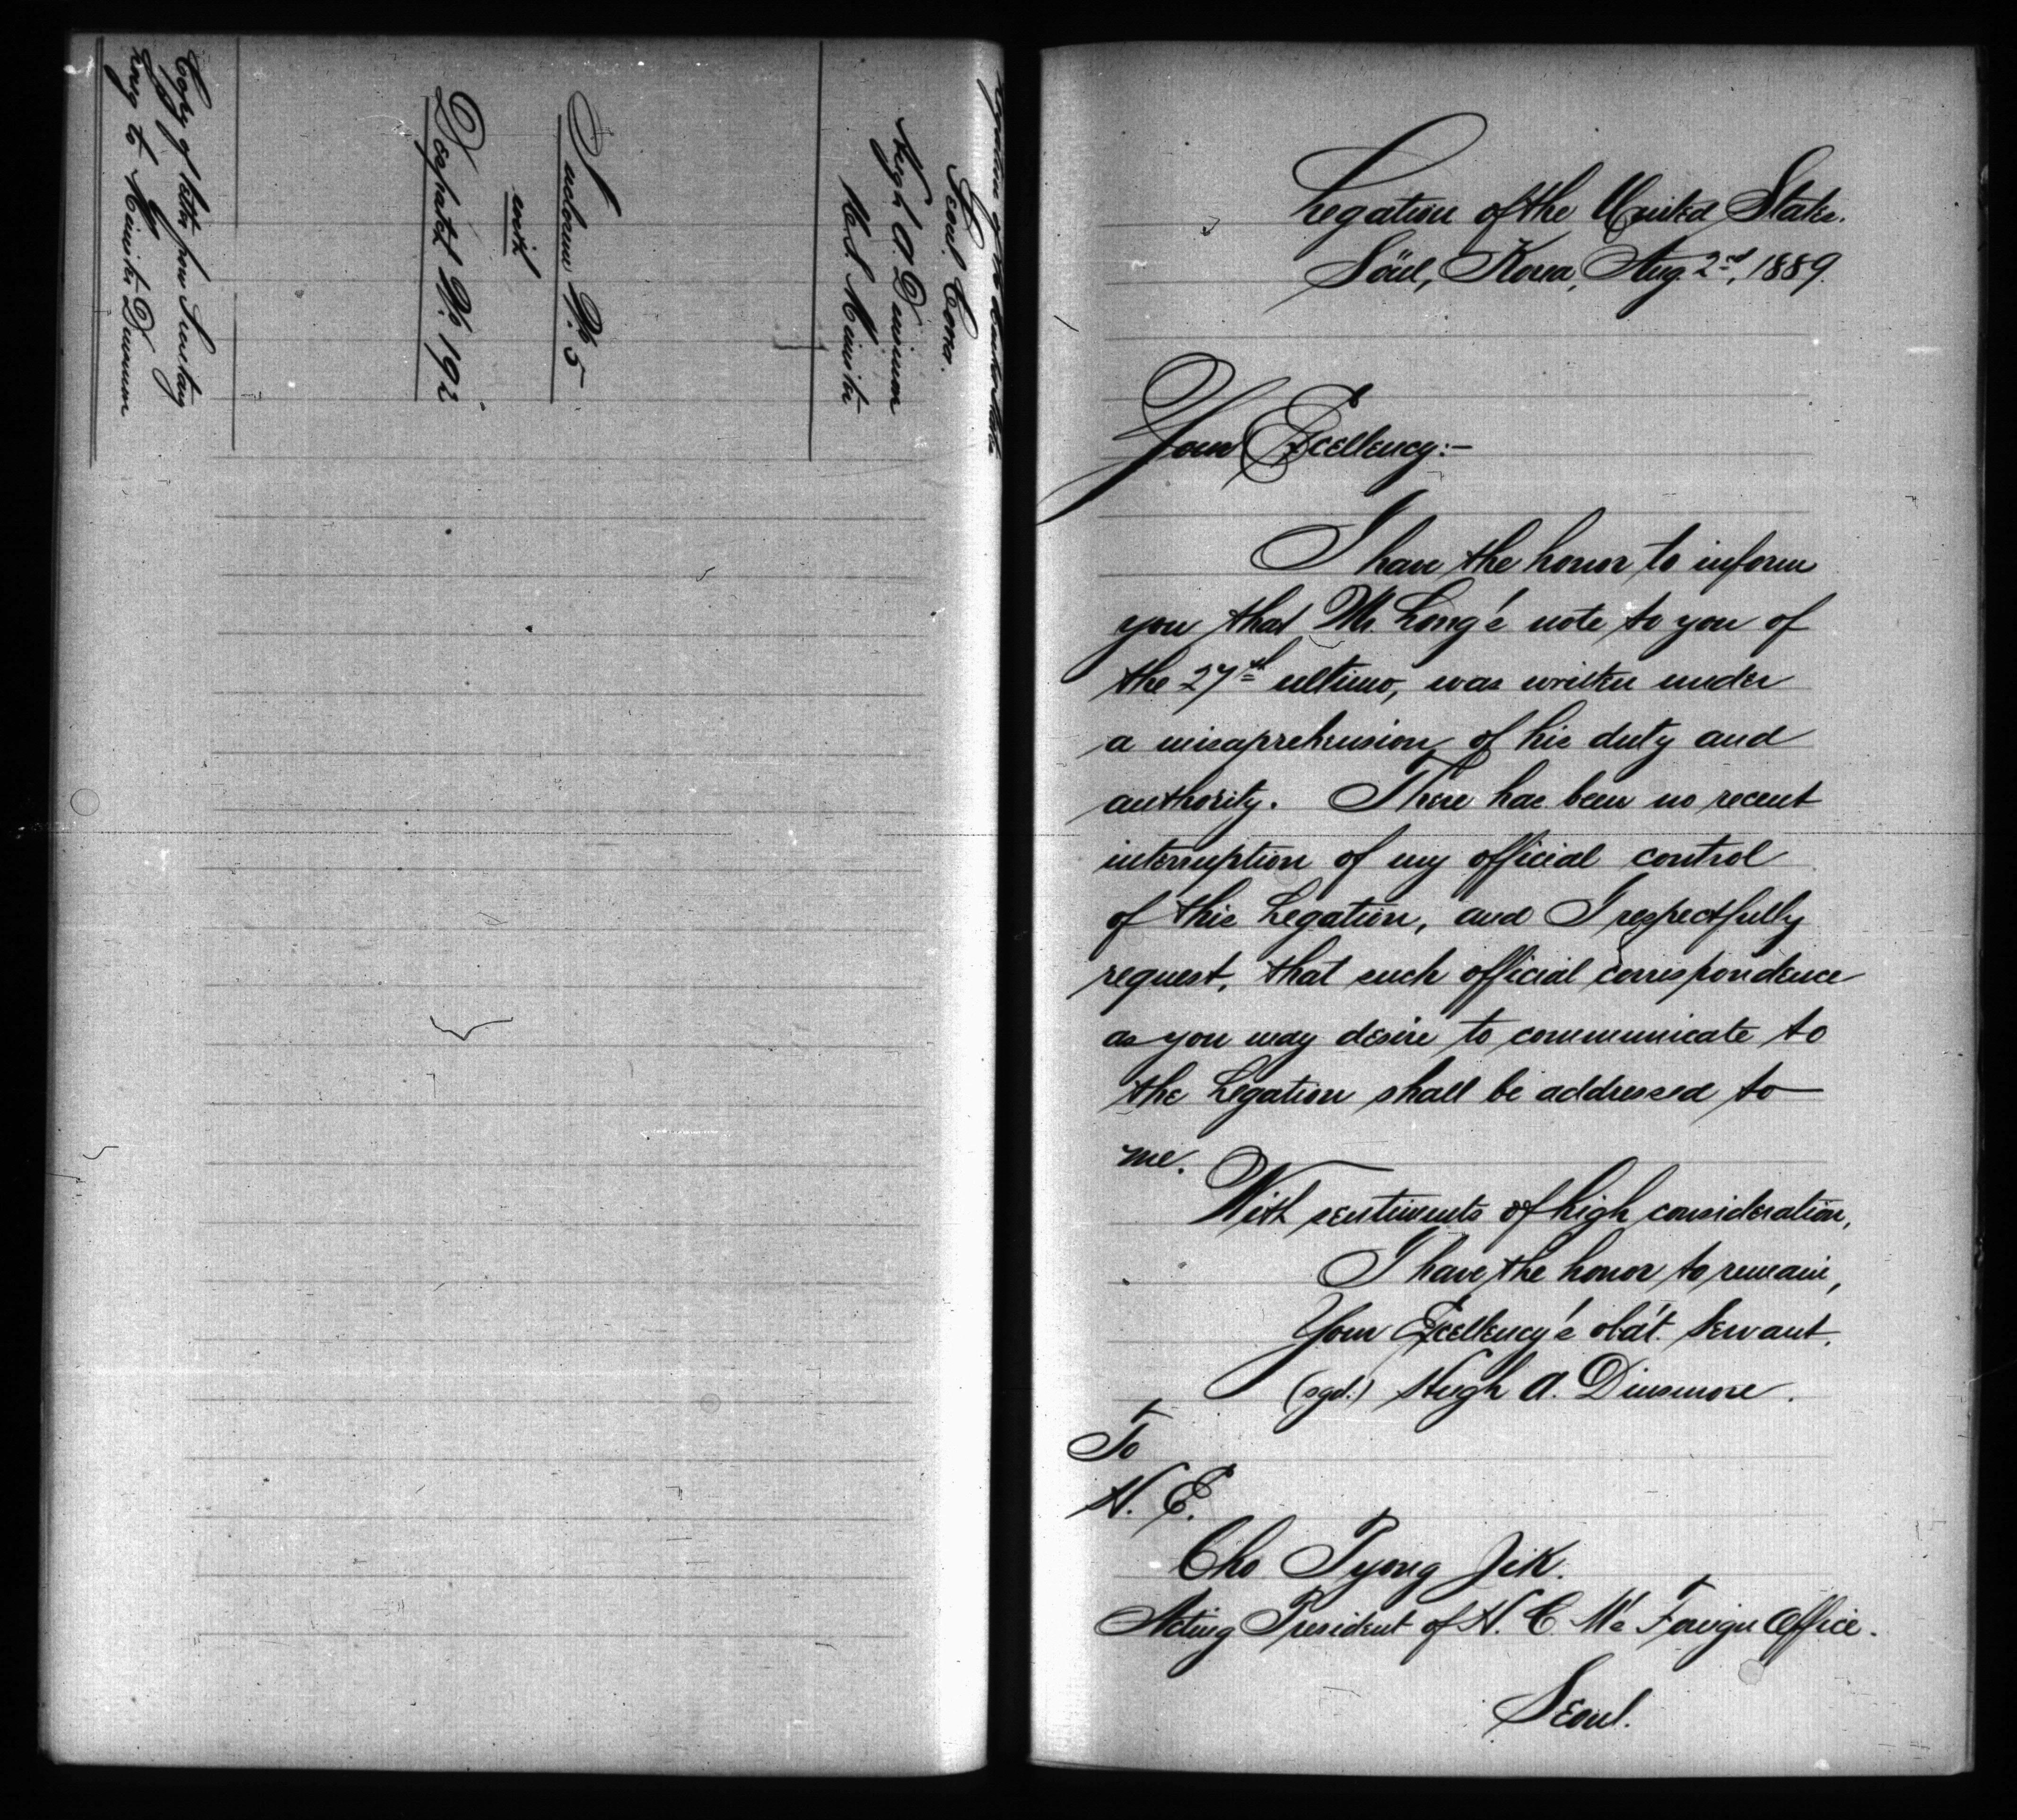 Legation of the United States
Seoul, Corea.
Hugh A. Dinsmore
U.S. Minister
Inclosure No. 5
with
Despatch No. 192
Copy of letter from Secretary
Long to Minister Dinsmore
Legation of the United States.
Söul, Korea, Aug. 2nd, 1889.
Your Excellency:-
I have the honor to inform
you that Mr. Long's note to you of
the 27th ultimo, was written under
a misaprehension of his duty and
authority. There has been no recent
interruption of my official control
of this Legation, and I respectfully
request, that such official correspondence
as you may desire to communicate to
the Legation shall be addressed to
me.
With sentiments of high consideration,
I have the honor to remain,
Your Excellency's obd't. Servant,
(sgd.) Hugh A. Dinsmore.
To
H. E.
Cho Pyong Jik.
Acting President of H. C. M's Foreign Office.
Seoul.